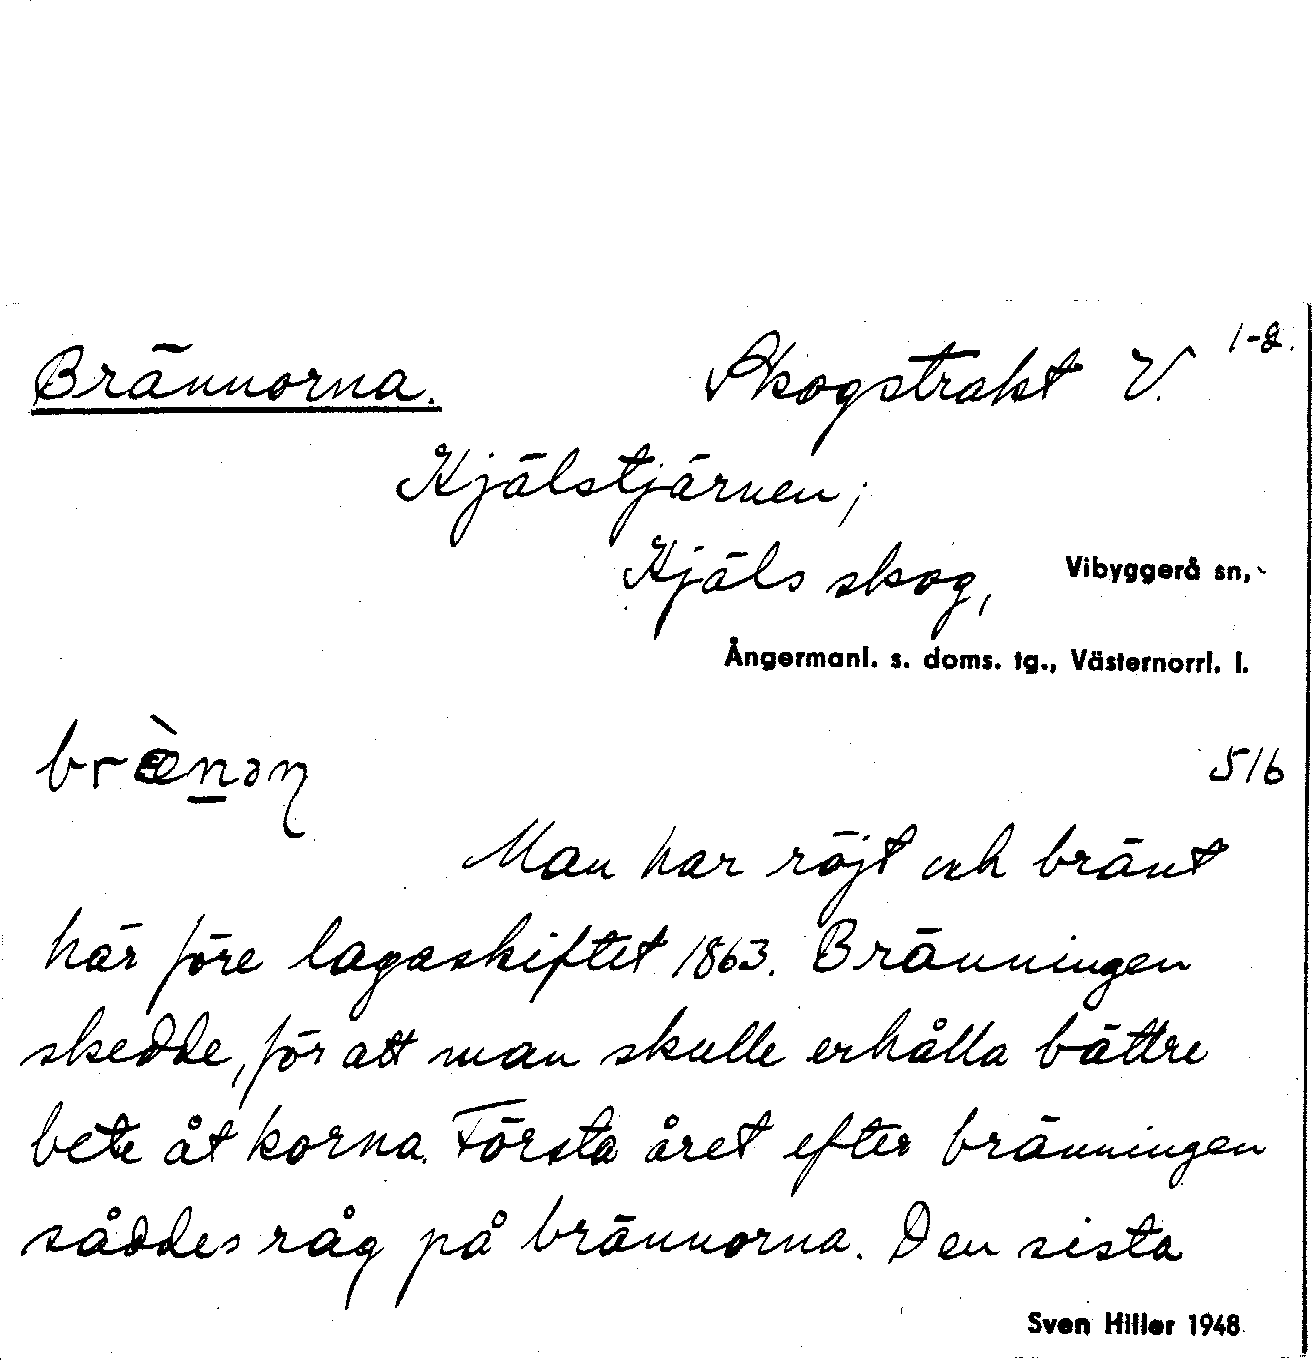 1-2.
Brännorna. Skogstrakt V.
Kjälstjärnen;
Kjäls skog, Vibyggerå sn,
Ångermanl. s. doms. tg., Västernorrl. l.
bræ̀n̲əɳ 516
Man har röjt och bränt
här före lagaskiftet 1863. Bränningen
skedde, för att man skulle erhålla bättre
bete åt korna. Första året efter bränningen
såddes råg på brännorna. Den sista
Sven Hiller 1948